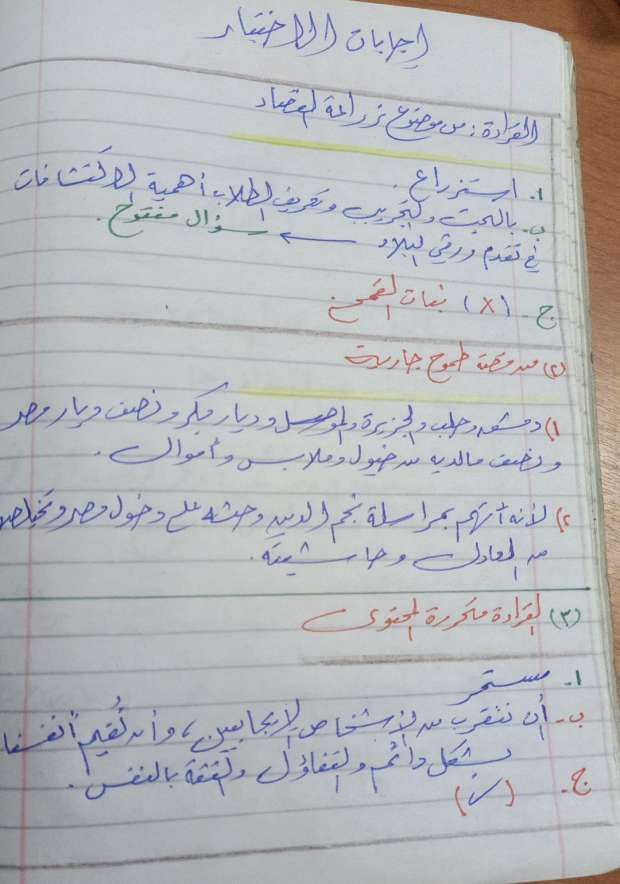 إجابات الاختبار
القراءة: من موضوع زراعة الفضاء
أ. استزراع.
ب. بالبحث والتجريب وتعريف الطلاب أهمية الاكتشافات
في تقدم ورقي البلاد ← سؤال مفتوح.
ج - (X) نبات القمح
(٢) من قصة طموح جارية
١) دمشق وحلب والجزيرة والموصل وديار بكر ونصف ديار مصر
ونصف مالديه من خيول وملابس وأموال.
٢) لأنه اتهم بمراسلة نجم الدين وحثه على دخول مصر وتخليصها
من العادل وحاشيته.
(٣) القراءة متحررة المحتوى
أ. مستمر
ب. أن نتقرب من الأشخاص الإيجابيين، وأن نُقيم أنفسنا
بشكل دائم والتفاؤل والثقة بالنفس.
ج. (✓)